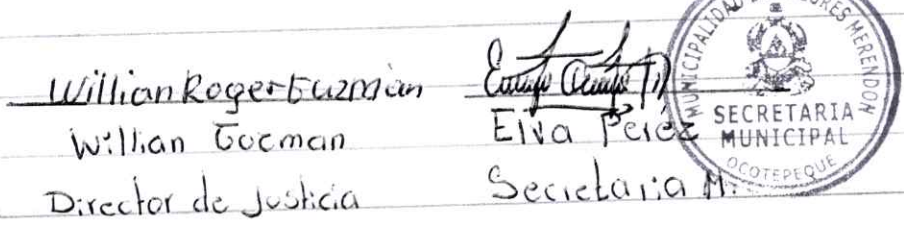 Willian Roger Guzmán
Willian Gocman
Director de Justicia
Elva Peréz
Secretaria M.
MUNICIPALIDAD
MERENDON
SECRETARIA
MUNICIPAL
OCOTEPEQUE